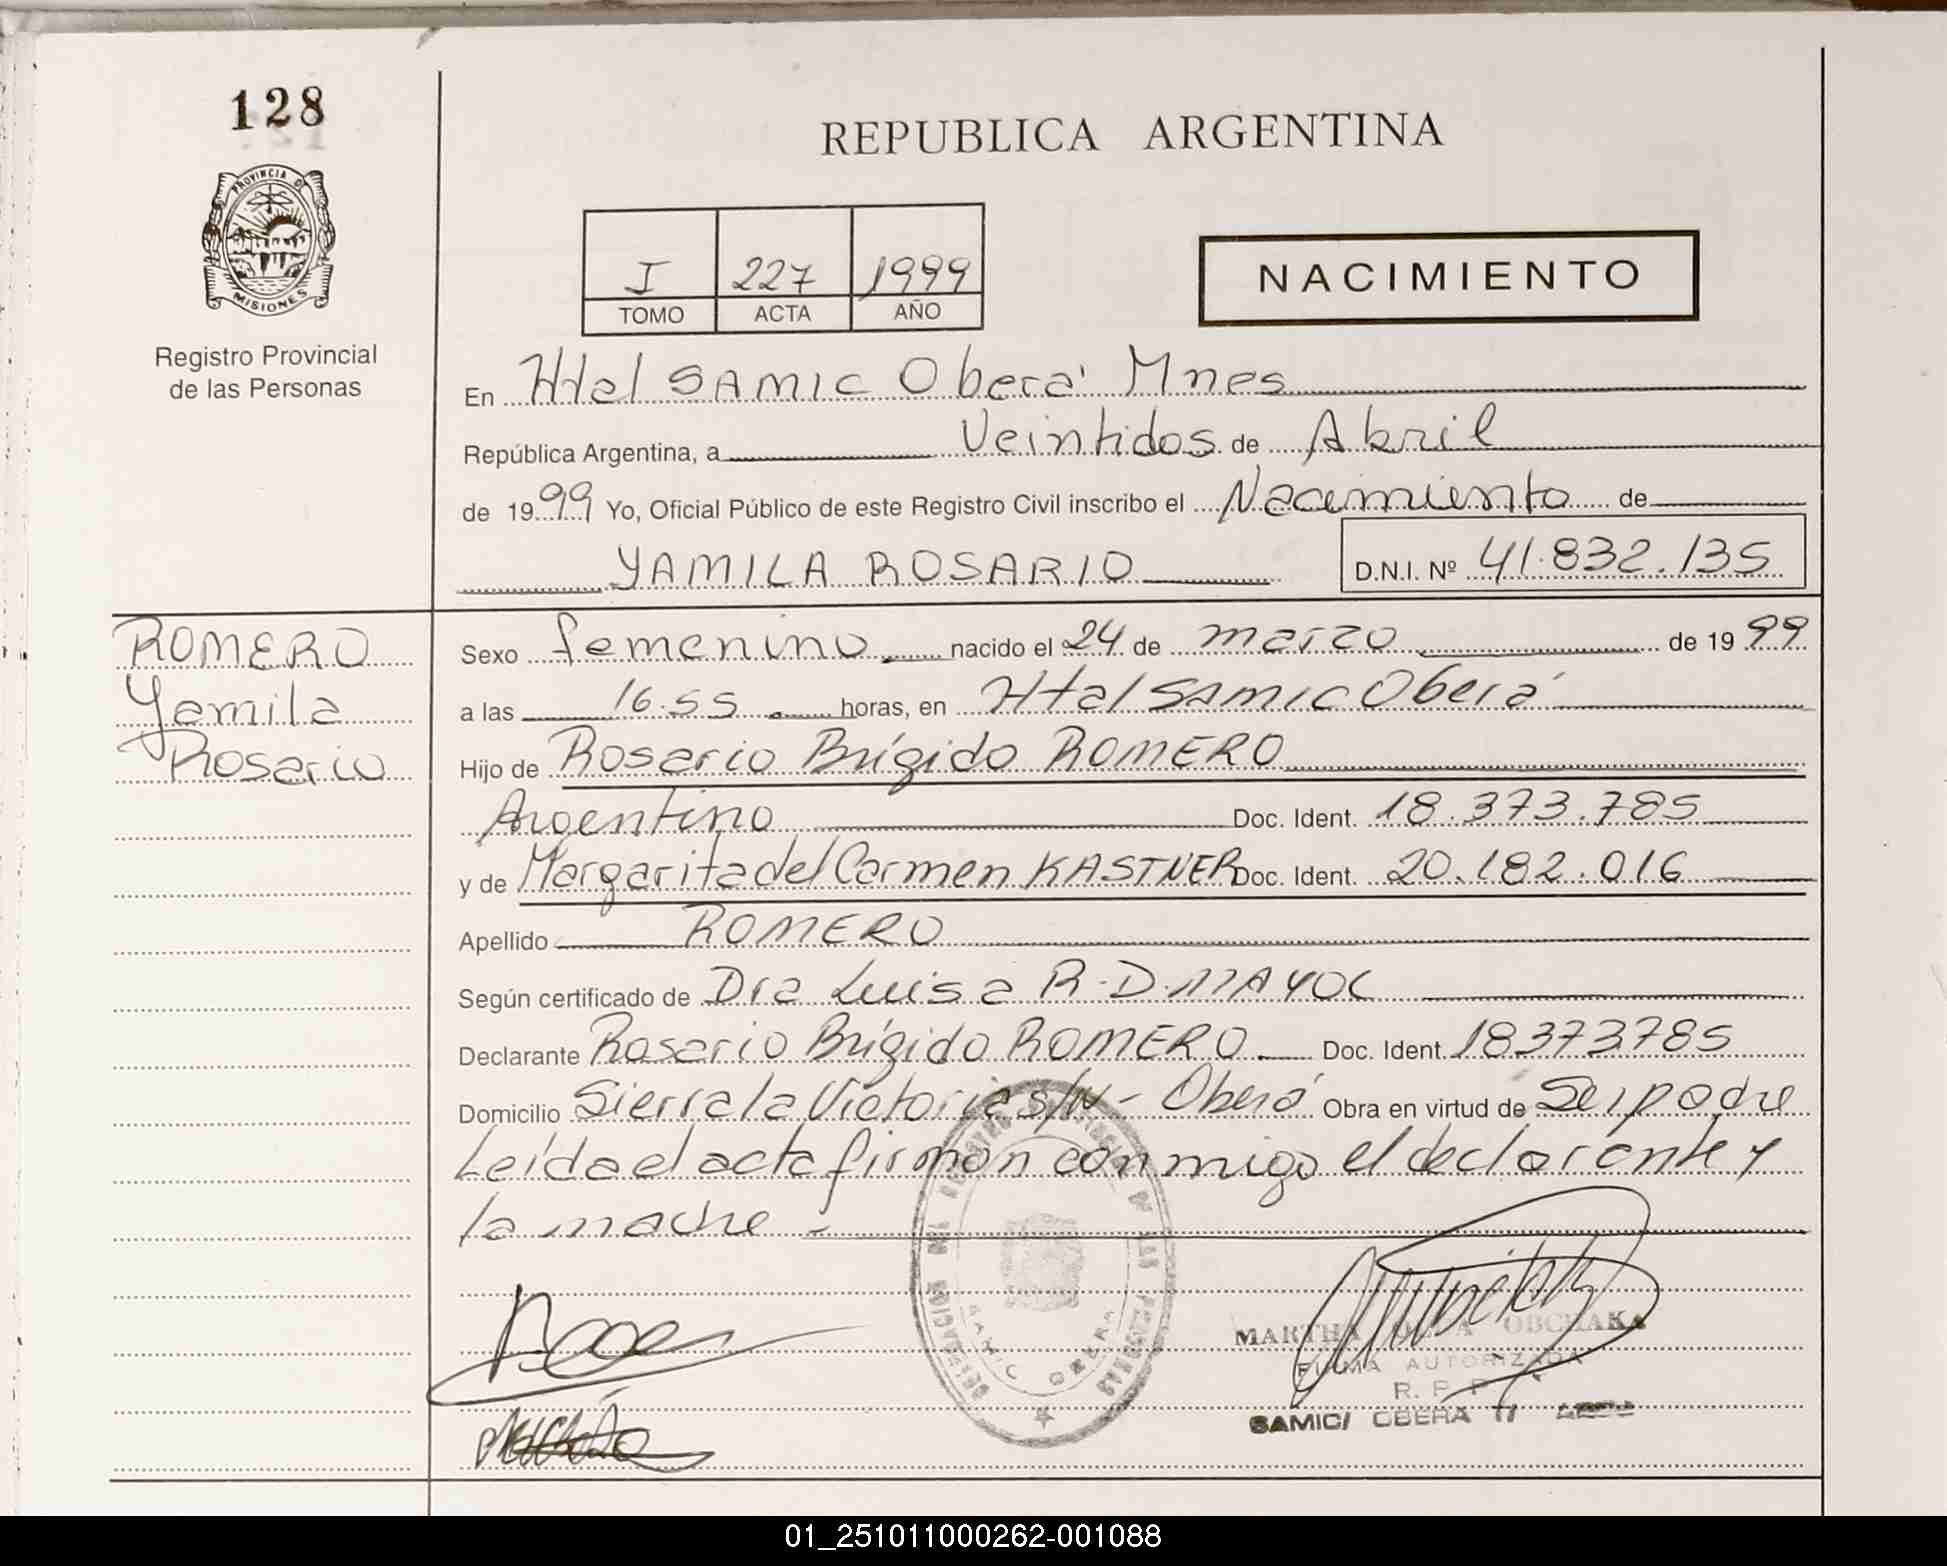 128
PROVINCIA D
MISIONES
Registro Provincial
de las Personas
REPUBLICA ARGENTINA
I 227 1999
TOMO ACTA AÑO
NACIMIENTO
En Htal SAMIC Oberá Mnes
República Argentina, a Veintidos de Abril
de 1999 Yo, Oficial Público de este Registro Civil inscribo el Nacimiento de
YAMILA ROSARIO D.N.I. Nº 41.832.135
ROMERO
Yamila
Rosario
Sexo femenino nacido el 24 de marzo de 1999
a las 16.55 horas, en Htal SAMIC Oberá
Hijo de Rosario Brígido ROMERO
Argentino Doc. Ident. 18.373.785
y de Margarita del Carmen KASTNER Doc. Ident. 20.182.016
Apellido ROMERO
Según certificado de Dra Luisa R. D. MAYOL
Declarante Rosario Brígido ROMERO Doc. Ident. 18373785
Domicilio Sierra la Victoria s/N - Oberá Obra en virtud de Ser padre
Leída el acta firman conmigo el declarante y
la madre -
DE LAS PERSONAS
SAMIC OBERA
MARTHA OBCHAKA
FIRMA AUTORIZADA
R. P. P.
SAMIC/ OBERA
01_251011000262-001088